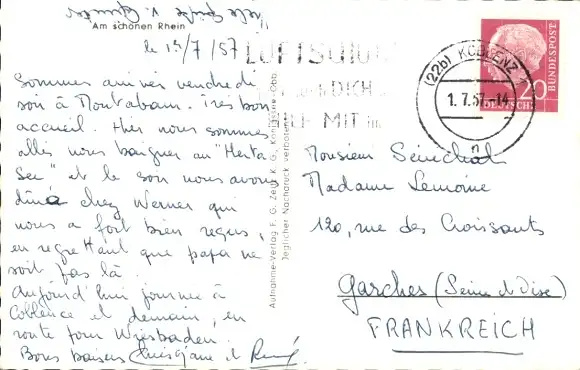 Viele Grüße v. Günter
Am schönen Rhein
le 1er/7/57
Sommes arrivés vendredi
soir à Montabaur. Très bon
accueil. Hier nous sommes
allés nous baigner au "Herta
See" et le soir nous avons
diné chez Werner qui
nous a fort bien reçus,
en regrettant que papa ne
soit pas là.
Aujourd'hui journée à
Coblence et demain, en
route pour Wiesbaden.
Bons baisers et René
Aufnahme-Verlag F. G. Zeitz K. G., Königssee-Obb.
Jeglicher Nachdruck verboten
LUFTSCHUTZ
DICH
HILF MIT
(22b) KOBLENZ
1.7.57-14
n
20
DEUTSCHE
BUNDESPOST
Monsieur Sénéchal
Madame Lemoine
120, rue des Croissants
Garches (Seine et Oise)
FRANKREICH